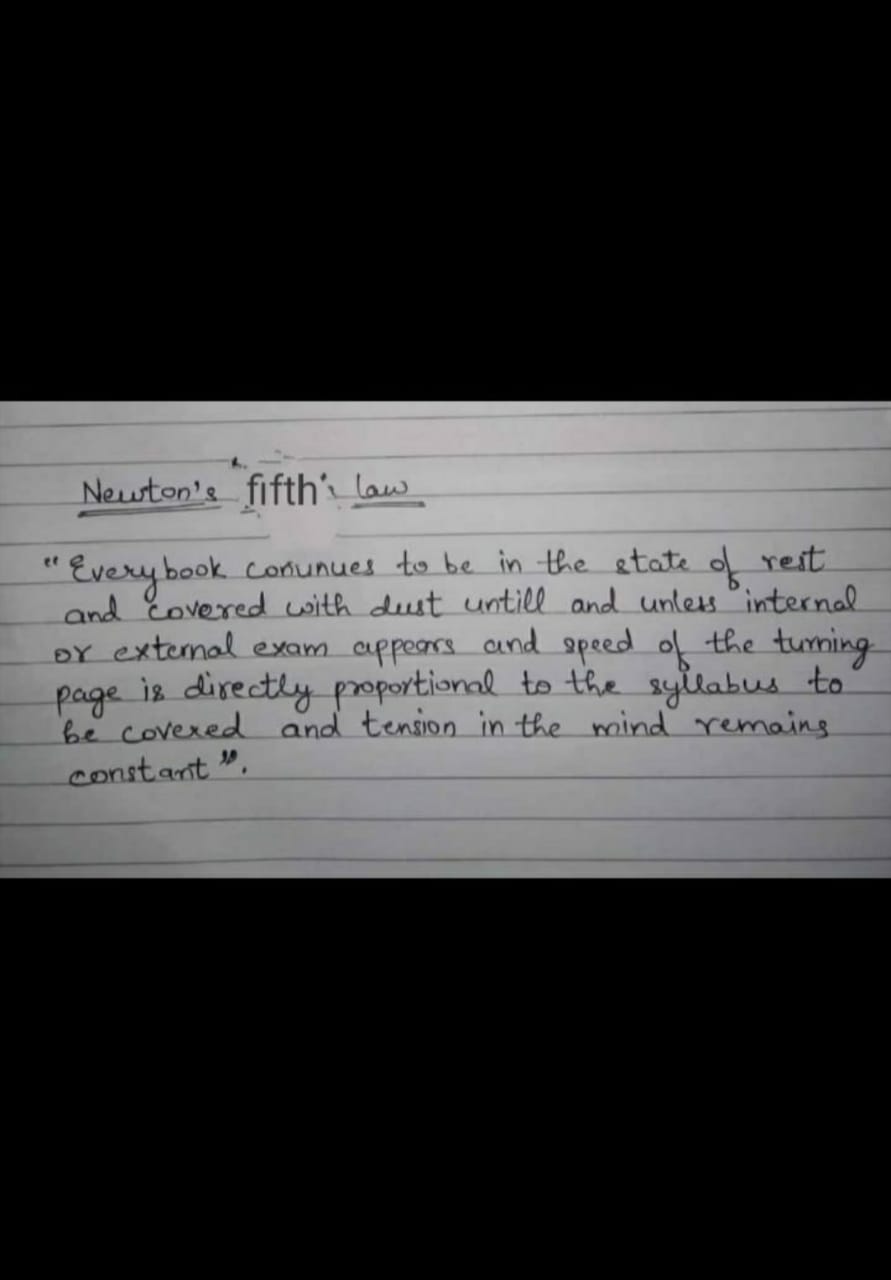 Newton's fifth law
"Everybook conunues to be in the state of rest
and covered with dust untill and unless internal
or external exam appears and speed of the turning
page is directly proportional to the syllabus to
be covered and tension in the mind remains
constant".